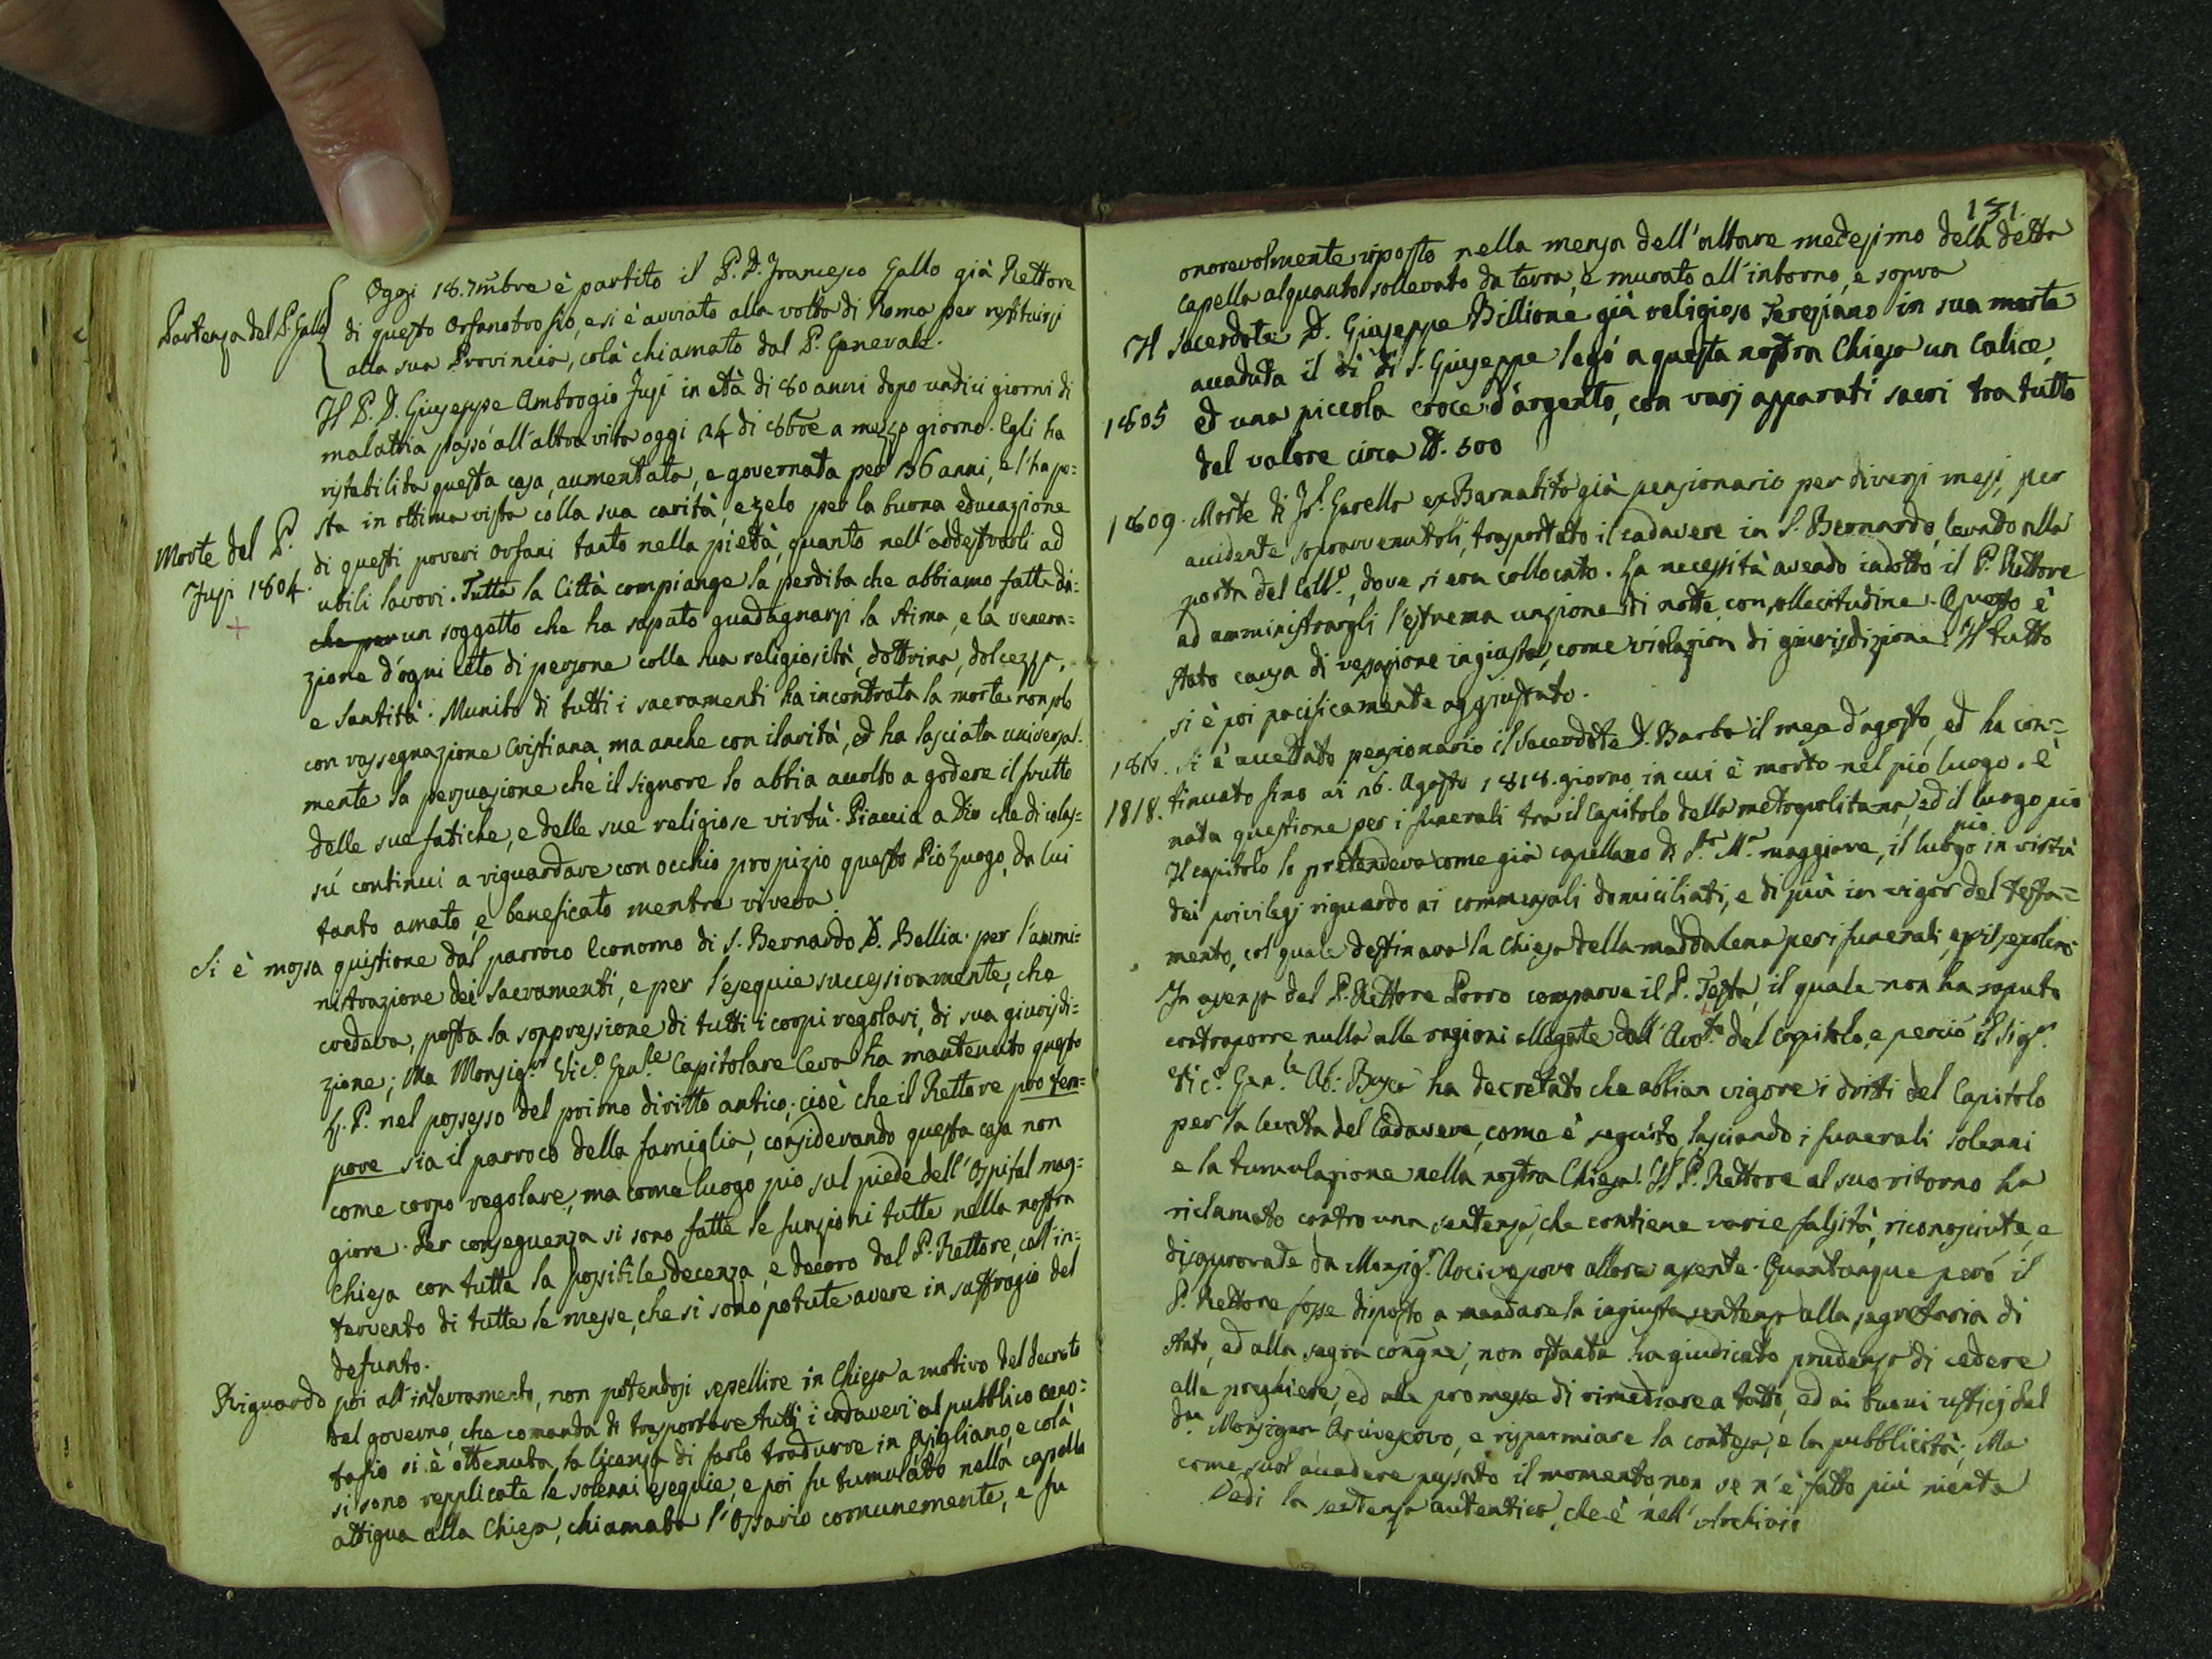 Oggi 18. 7mbre è partito il P. D. Francesco Gallo già Rettore
Partenza del P. Gallo
di questo Orfanotrofio, e si è avviato alla volta di Roma per restituirsi
alla sua Provincia, colà chiamato dal P. Generale.
Il P. D. Giuseppe Ambrogio Jusi in età di 80 anni dopo undici giorni di
malattia passò all'altra vita oggi 24 di 8bre a mezzo giorno. Egli ha
ristabilita questa casa, aumentata, e governata per 36 anni, e l'ha po=
sta in ottima vista colla sua carità, e zelo per la buona educazione
Morte del P.
Jusi 1804.
di questi poveri Orfani tanto nella pietà, quanto nell'addestrarli ad
utili lavori. Tutta la Città compiange la perdita che abbiamo fatta di=
che per un soggetto che ha saputo guadagnarsi la stima, e la venera=
zione d'ogni ceto di persone colla sua religiosità, dottrina, dolcezza,
e santità. Munito di tutti i sacramenti ha incontrata la morte non solo
con rassegnazione Cristiana, ma anche con ilarità, ed ha lasciata universal=
mente la persuasione che il Signore lo abbia accolto a godere il frutto
delle sue fatiche, e delle sue religiose virtù. Piaccia a Dio che di colas=
sù continui a riguardare con occhio propizio questo Pio Luogo, da lui
tanto amato, e beneficato mentre viveva.
Si è mossa quistione dal parroco Economo di S. Bernardo D. Bellia per l'ammi=
nistrazione dei Sacramenti, e per l'esequie successivamente, che
credeva, posta la soppressione di tutti i corpi regolari, di sua giurisdi=
zione; Ma Monsig.r Vic.o Gen.le Capitolare Ceva ha mantenuto questo
L. P. nel possesso del primo diritto antico; cioè che il Rettore pro tem=
pore sia il parroco della famiglia, considerando questa casa non
come corpo regolare, ma come luogo pio sul piede dell'Ospital mag=
giore. Per conseguenza si sono fatte le funzioni tutte nella nostra
Chiesa con tutta la possibile decenza, e decoro dal P. Rettore, coll'in=
tervento di tutte le messe, che si sono potute avere in suffragio del
defunto.
Riguardo poi all'interramento, non potendosi sepellire in Chiesa a motivo del decreto
del governo, che comanda di trasportare tutti i cadaveri al pubblico ceno=
tafio si è ottenuta la licenza di farlo tradurre in Asigliano, e colà
si sono repplicate le solenni esequie, e poi fu tumulato nella capella
attigua alla Chiesa, chiamata l'Ossario comunemente, e fu
131.
onorevolmente riposto nella mensa dell'altare medesimo della detta
capella alquanto sollevato da terra, e murato all'intorno, e sopra
Il Sacerdote D. Giuseppe Billione già religioso Teresiano in sua morte
accaduta il dì di S. Giuseppe legò a questa nostra Chiesa un Calice,
1805 ed una piccola croce d'argento, con varj apparati sacri tra tutto
del valore circa 500
1809. Morte di Garella exBarnabita già pensionario per diversi mesi, per
accidente sopravvenutoli, trasportato il cadavere in S. Bernardo, levando alla
porta del Coll.o, dove si era collocato. La necessità avendo indotto il P. Rettore
ad amministrargli l'estrema unzione di notte con sollecitudine. Questo è
stato causa di vessazione ingiusta, come violazion di giurisdizione. Il tutto
si è poi pacificamente aggiustato.
Si è accettato pensionario il Sacerdote D. Barba il mese d'agosto, ed ha con=
1818. tinuato fino ai 26. Agosto 1818. giorno in cui è morto nel pio luogo. è
nata questione per i funerali tra il Capitolo della metropolitana, ed il luogo pio
Il capitolo lo pretendeva come già capellano di S.ta M.a maggiore, il luogo pio in virtù
dei privilegj riguardo ai commensali domiciliati, e di più in vigor del testa=
mento, col quale destinava la Chiesa della maddalena per i funerali, e pel sepolcro.
In assenza del P. Rettore Porro comparve il P. Testa, il quale non ha saputo
contraporre nulla alle ragioni allegate dall'Avo.to del Capitolo, e perciò il Sig.r
Vic.o Gen.le Ab: ha decretato che abbian vigore i dritti del Capitolo
per la levata del Cadavere, come è seguito, lasciando i funerali solenni
e la tumulazione nella nostra Chiesa. Il P. Rettore al suo ritorno ha
riclamato contro una sentenza, che contiene varie falsità, riconosciute, e
disapprovate da Monsig.r Arcivescovo allora assente. Quantunque però il
P. Rettore fosse disposto a mandare la ingiusta sentenza alla segreteria di
stato, ed alla sagra congne, non ostante ha giudicato prudenza di cedere
alle preghiere, ed alle promesse di rimediare a tutto, ed ai buoni ufficj del
Monsignor Arcivescovo, e risparmiare la contesa, e la pubblicità; Ma
come suol accadere passato il momento non se n'è fatto più niente
Vedi la sentenza autentica, che è nell'Archivio